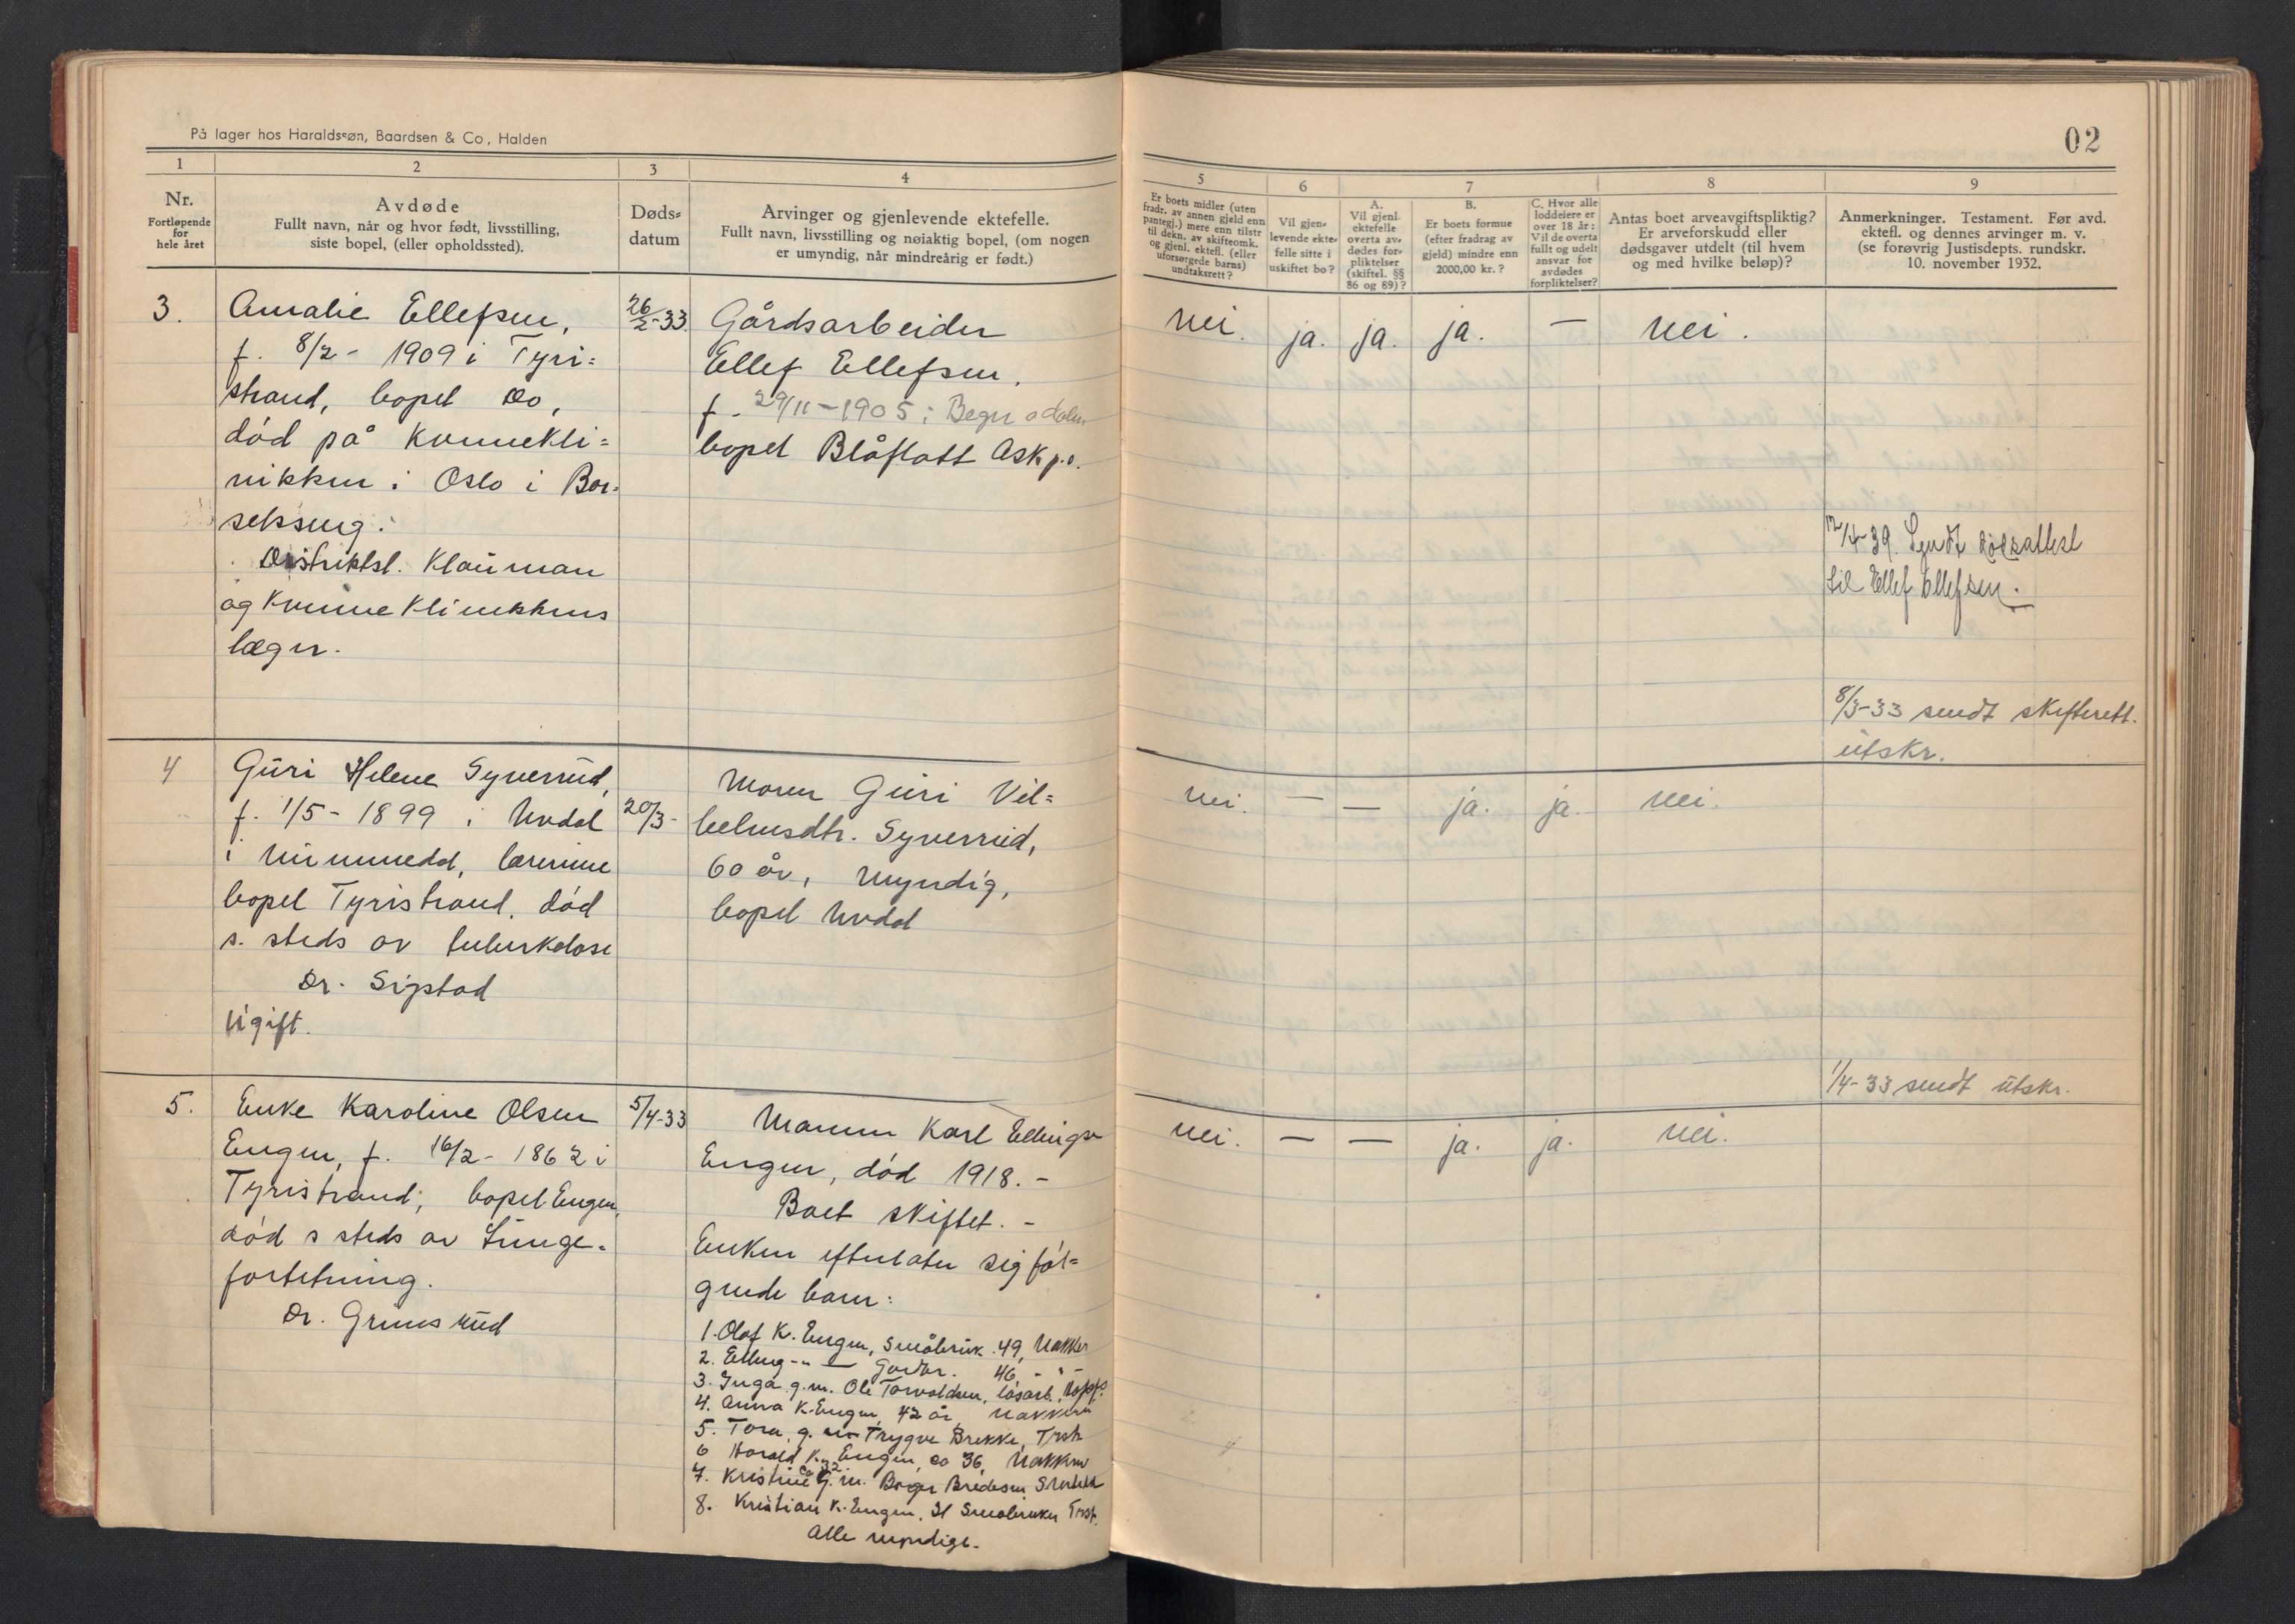 På lager hos Haraldssøn, Baardsen & Co, Halden
1
2
3
4
Nr.
Fortløpende
for
hele året
Avdøde
Fullt navn, når og hvor født, livsstilling,
siste bopel, (eller opholdssted).
Døds=
datum
Arvinger og gjenlevende ektefelle.
Fullt navn, livsstilling og nøiaktig bopel, (om nogen
er umyndig, når mindreårig er født.)
3.
Amalie Ellefsen,
f. 8/2 - 1909 i Tyri=
strand, bopel do,
død på Kvinnekli=
nikken i Oslo i Bar=
selsseng.
Distriktsl. Klauman
og Kvinneklinikkens
læger.
26/2-33.
Gårdsarbeider
Ellef Ellefsen,
f. 29/11-1905 i Begnadalen
bopel Blåflatt Ask p.o.
4
Guri Helene Syverrud,
f. 1/5 - 1899 i Uvdal
i Nummedal, lærerinne
bopel Tyristrand, død
s. steds av tuberkolose
Dr. Sigstad
Ugift.
20/3-
Moren Guri Vil=
helmsdtr. Syverrud,
60 år, myndig,
bopel Uvdal
5.
Enke Karoline Olsen
Engen, f. 16/2 - 1862 i
Tyristrand, bopel Engen,
død s steds av Lunge=
fortetning.
Dr. Grimsrud
5/4-33
Mannen Karl Ellingsn
Engen, død 1918. -
Boet skiftet. -
Enken efterlater sig føl=
gende barn:
1. Olaf K. Engen, Småbruk. 49, Nakker
2. Elling -"- Gardbr. 46, - " -
3. Inga g.m. Ole Torvaldsen, løsarb.
4. Anna K. Engen, 42 år, Nakkerud
5. Tora, g. m Trygve Brekke, Trstr
6 Harald K. Engen, ca 36, Nakkerud
7. Kristine ca 32 g.m. Birger Bredesen
8. Kristian K. Engen, 31 Småbruker Trstr.
Alle myndige.
02
5
6
7
8
9
Er boets midler (uten
fradr. av annen gjeld enn
pantegj.) mere enn tilstr
til dekn. av skifteomk.
og gjenl. ektefl. (eller
uforsørgede barns)
undtaksrett?
Vil gjen=
levende ekte=
felle sitte i
uskiftet bo?
A.
Vil gjenl.
ektefelle
overta av=
dødes for=
pliktelser
(skiftel. §§
86 og 89)?
B.
Er boets formue
(efter fradrag av
gjeld) mindre enn
2000,00 kr.?
C. Hvor alle
loddeiere er
over 18 år:
Vil de overta
fullt og udelt
ansvar for
avdødes
forpliktelser?
Antas boet arveavgiftspliktig?
Er arveforskudd eller
dødsgaver utdelt (til hvem
og med hvilke beløp)?
Anmerkninger. Testament. Før avd.
ektefl. og dennes arvinger m. v.
(se forøvrig Justisdepts. rundskr.
10. november 1932.
nei. ja. ja. ja. — nei.
12/4-39. Sendt dødsattest
til Ellef Ellefsen.
8/3-33 sendt skifterett.
utskr.
nei. — — ja. ja. nei.
1/4-33 sendt utskr.
nei. — — ja. ja. nei.